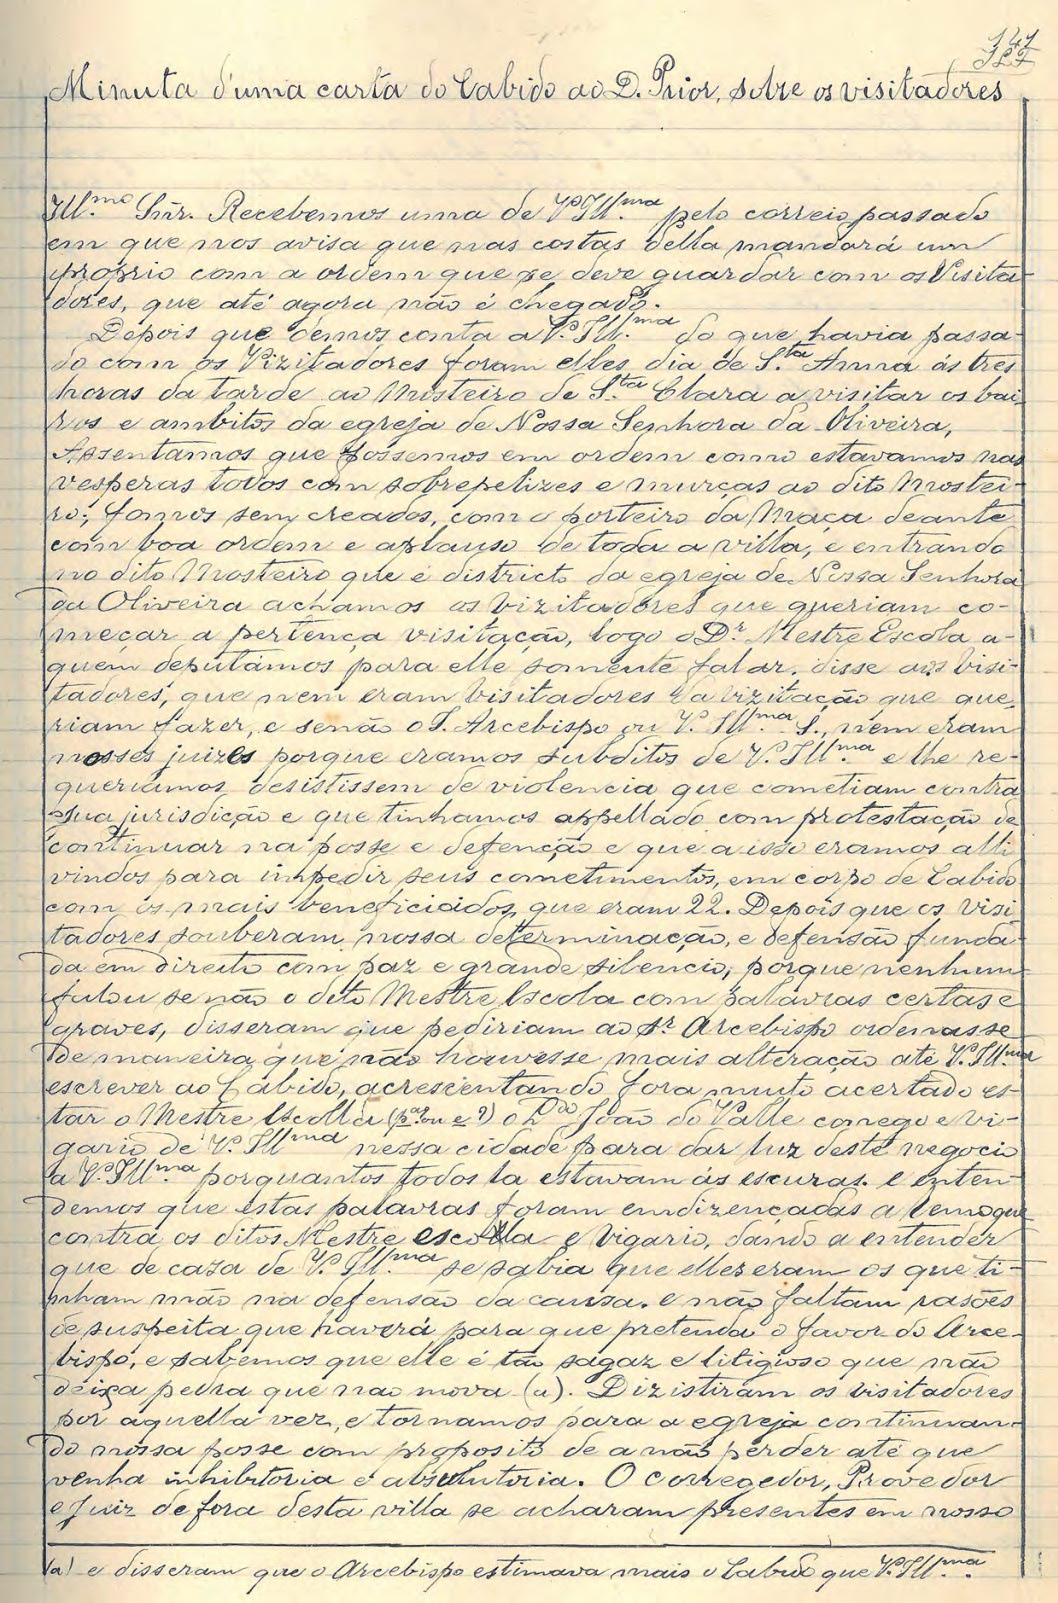 Minuta d'uma carta do Cabido ao D. Prior, sobre os visitadores
Ill.mo Snr. Recebemos uma de V. Ill.ma pelo correio passado
em que nos avisa que nas costas della mandará um
proprio com a ordem que se deve guardar com os Visita-
dores, que até agora não é chegado.
Depois que démos conta a V. Ill.ma do que havia passa-
do com os Vizitadores foram elles dia de S.ta Anna ás tres
horas da tarde ao Mosteiro de S.ta Clara a visitar os bai-
ros e ambitos da egreja de Nossa Senhora da Oliveira,
Assentamos que fossemos em ordem como estavamos nas
vesperas todos com sobrepelizes e murças ao dito Mostei-
ro; fomos sem creados, com o porteiro da Maça deante
com boa ordem e aplauso de toda a villa, e entrando
no dito Mosteiro que é districto da egreja de Nossa Senhora
da Oliveira achamos os Vizitadores que queriam co-
meçar a pertença visitação, logo o D.r Mestre Escola a-
quem deputámos para elle somente falar, disse aos Visi-
tadores, que nem eram Visitadores da vizitação que que-
riam fazer, e senão o S. Arcebispo ou V. Ill.ma S., nem eram
nossos juizes porque eramos subditos de V. Ill.ma e lhe re-
queriamos desistissem de violencia que cometiam contra
sua jurisdicção e que tinhamos appellado com protestação de
continuar na posse e defenção e que a isso eramos alli
vindos para impedir seus cometimentos, em corpo de Cabido
com os mais beneficiados, que eram 22. Depois que os Visi-
tadores souberam nossa determinação, e defensão funda-
da em direito com paz e grande silencio, porque nenhum
falou se não o dito Mestre Escola com palavras certas e
graves, disseram que pediriam ao Sr Arcebispo ordenasse
de maneira que não houvesse mais alteração até V. Ill.ma
escrever ao Cabido, acrescentando fora muito acertado es-
tar o Mestre Escolla (par ou e?) o L.do João do Valle conego e vi-
gario de V. Ill.ma nessa cidade para dar luz deste negocio
a V. Ill.ma porquanto todos la estavam ás escuras. e enten-
demos que estas palavras foram endizençadas a
contra os ditos Mestre escolla e Vigario, dando a entender
que de caza de V. Ill.ma se sabia que elles eram os que ti-
nham mão na defensão da causa. e não faltam rasões
de suspeita que haverá para que pretenda o favor do Arce-
bispo, e sabemos que elle é tão sagaz e litigioso que não
deixa pedra que nao mova (a). Dizistiram os visitadores
por aquella vez, e tornamos para a egreja continuan-
do nossa posse com proposito de a não perder até que
venha inhibitoria e absolutoria. O corregedor, Provedor
e Juiz de fora desta villa se acharam presentes em nosso
(a) e disseram que o Arcebispo estimava mais o Cabido que V. Ill.ma.